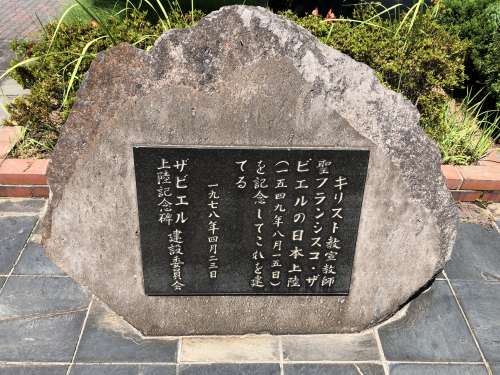 キリスト教宣教師
聖フランシスコ・ザ
ビエルの日本上陸
(一五四九年八月一五日)
を記念してこれを建
てる
一九七八年四月二三日
ザビエル
上陸記念碑 建設委員会